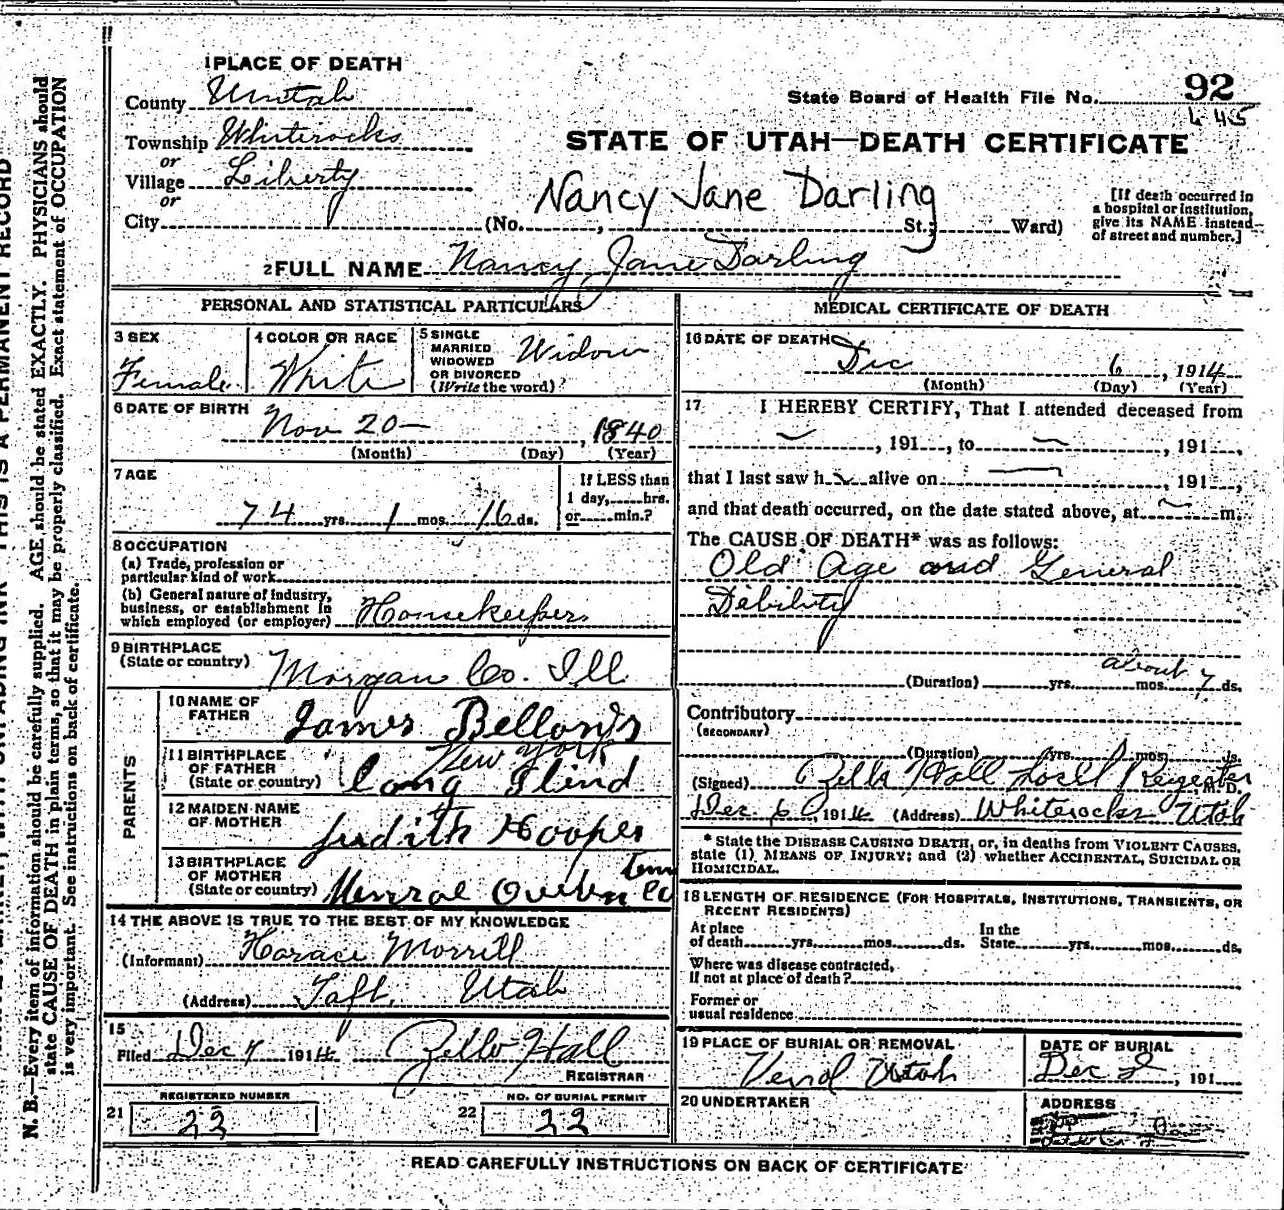 1 PLACE OF DEATH
County Uintah
Township Whiterocks
or
Village Liberty
or
City
State Board of Health File No. 92
445
STATE OF UTAH—DEATH CERTIFICATE
Nancy Jane Darling
(No. , St.; Ward)
[If death occurred in
a hospital or institution,
give its NAME instead
of street and number.]
2 FULL NAME Nancy Jane Darling
PERSONAL AND STATISTICAL PARTICULARS
3 SEX
Female
4 COLOR OR RACE
White
5 SINGLE
MARRIED
WIDOWED
OR DIVORCED
(Write the word)
Widow
6 DATE OF BIRTH
Nov 20 — , 1840
(Month) (Day) (Year)
7 AGE
74 yrs. 1 mos. 16 ds.
If LESS than
1 day, hrs.
or min.?
8 OCCUPATION
(a) Trade, profession or
particular kind of work
(b) General nature of industry,
business, or establishment in
which employed (or employer) Housekeeper
9 BIRTHPLACE
(State or country) Morgan Co. Ill
PARENTS
10 NAME OF
FATHER
James Bellows
11 BIRTHPLACE
OF FATHER
(State or country)
New York
Long Ilind
12 MAIDEN NAME
OF MOTHER
Judith Hooper
13 BIRTHPLACE
OF MOTHER
(State or country)
Tenn
Monroe Co
14 THE ABOVE IS TRUE TO THE BEST OF MY KNOWLEDGE
(Informant) Horace Morrill
(Address) Taft Utah
15
Filed Dec 7 1914 Hall
REGISTRAR
REGISTERED NUMBER
21 22
NO. OF BURIAL PERMIT
22 22
MEDICAL CERTIFICATE OF DEATH
16 DATE OF DEATH
Dec 6 , 1914
(Month) (Day) (Year)
17 I HEREBY CERTIFY, That I attended deceased from
— , 191 , to — , 191 ,
that I last saw h alive on — , 191 ,
and that death occurred, on the date stated above, at m.
The CAUSE OF DEATH* was as follows:
Old Age and General
Debility
about
(Duration) yrs. mos. 7 ds.
Contributory
(SECONDARY)
(Duration) yrs. mos. ds.
(Signed) Hall Local Regester M. D.
Dec 6 , 1914 (Address) Whiterocks Utah
* State the DISEASE CAUSING DEATH, or, in deaths from VIOLENT CAUSES,
state (1) MEANS OF INJURY; and (2) whether ACCIDENTAL, SUICIDAL OR
HOMICIDAL.
18 LENGTH OF RESIDENCE (FOR HOSPITALS, INSTITUTIONS, TRANSIENTS, OR
RECENT RESIDENTS)
At place
of death yrs. mos. ds.
In the
State yrs. mos. ds.
Where was disease contracted,
If not at place of death?
Former or
usual residence
19 PLACE OF BURIAL OR REMOVAL
Vernal Utah
DATE OF BURIAL
Dec , 191
20 UNDERTAKER
ADDRESS
READ CAREFULLY INSTRUCTIONS ON BACK OF CERTIFICATE
N. B.—Every item of information should be carefully supplied. AGE should be stated EXACTLY. PHYSICIANS should
state CAUSE OF DEATH in plain terms, so that it may be properly classified. Exact statement of OCCUPATION
is very important. See instructions on back of certificate.
THIS IS A PERMANENT RECORD